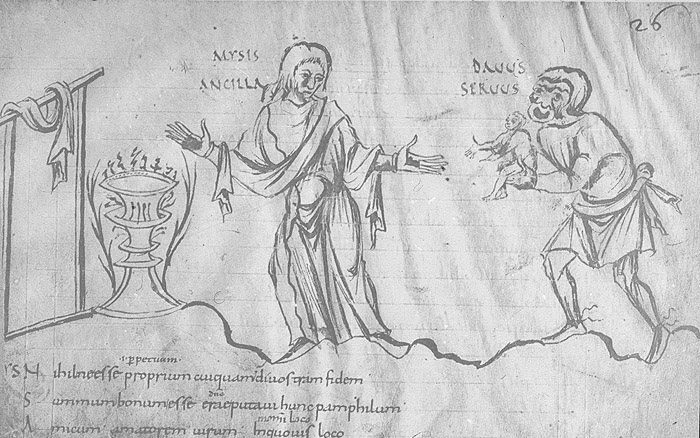 26
MYSIS
ANCILLA
DAVUS
SERVUS
.i. ppetuum.
N ihilneesse proprium cuiquam divostram fidem
S ummumbonumesse eraeputavi hunc pamphilum
A micum amatorem virum Inquovis loco